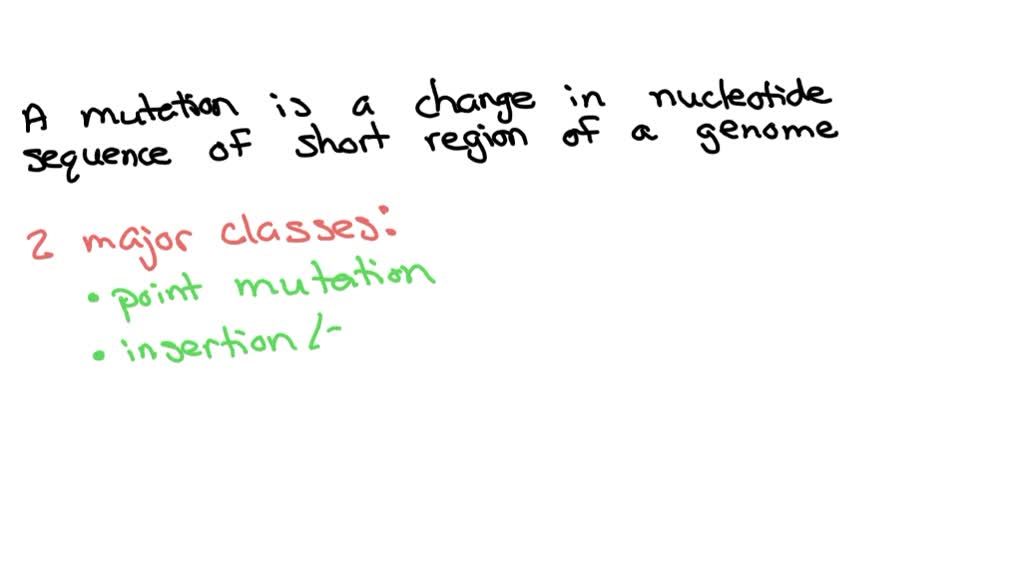 A mutation is a change in nucleotide
sequence of short region of a genome
2 major classes:
• point mutation
• insertion /